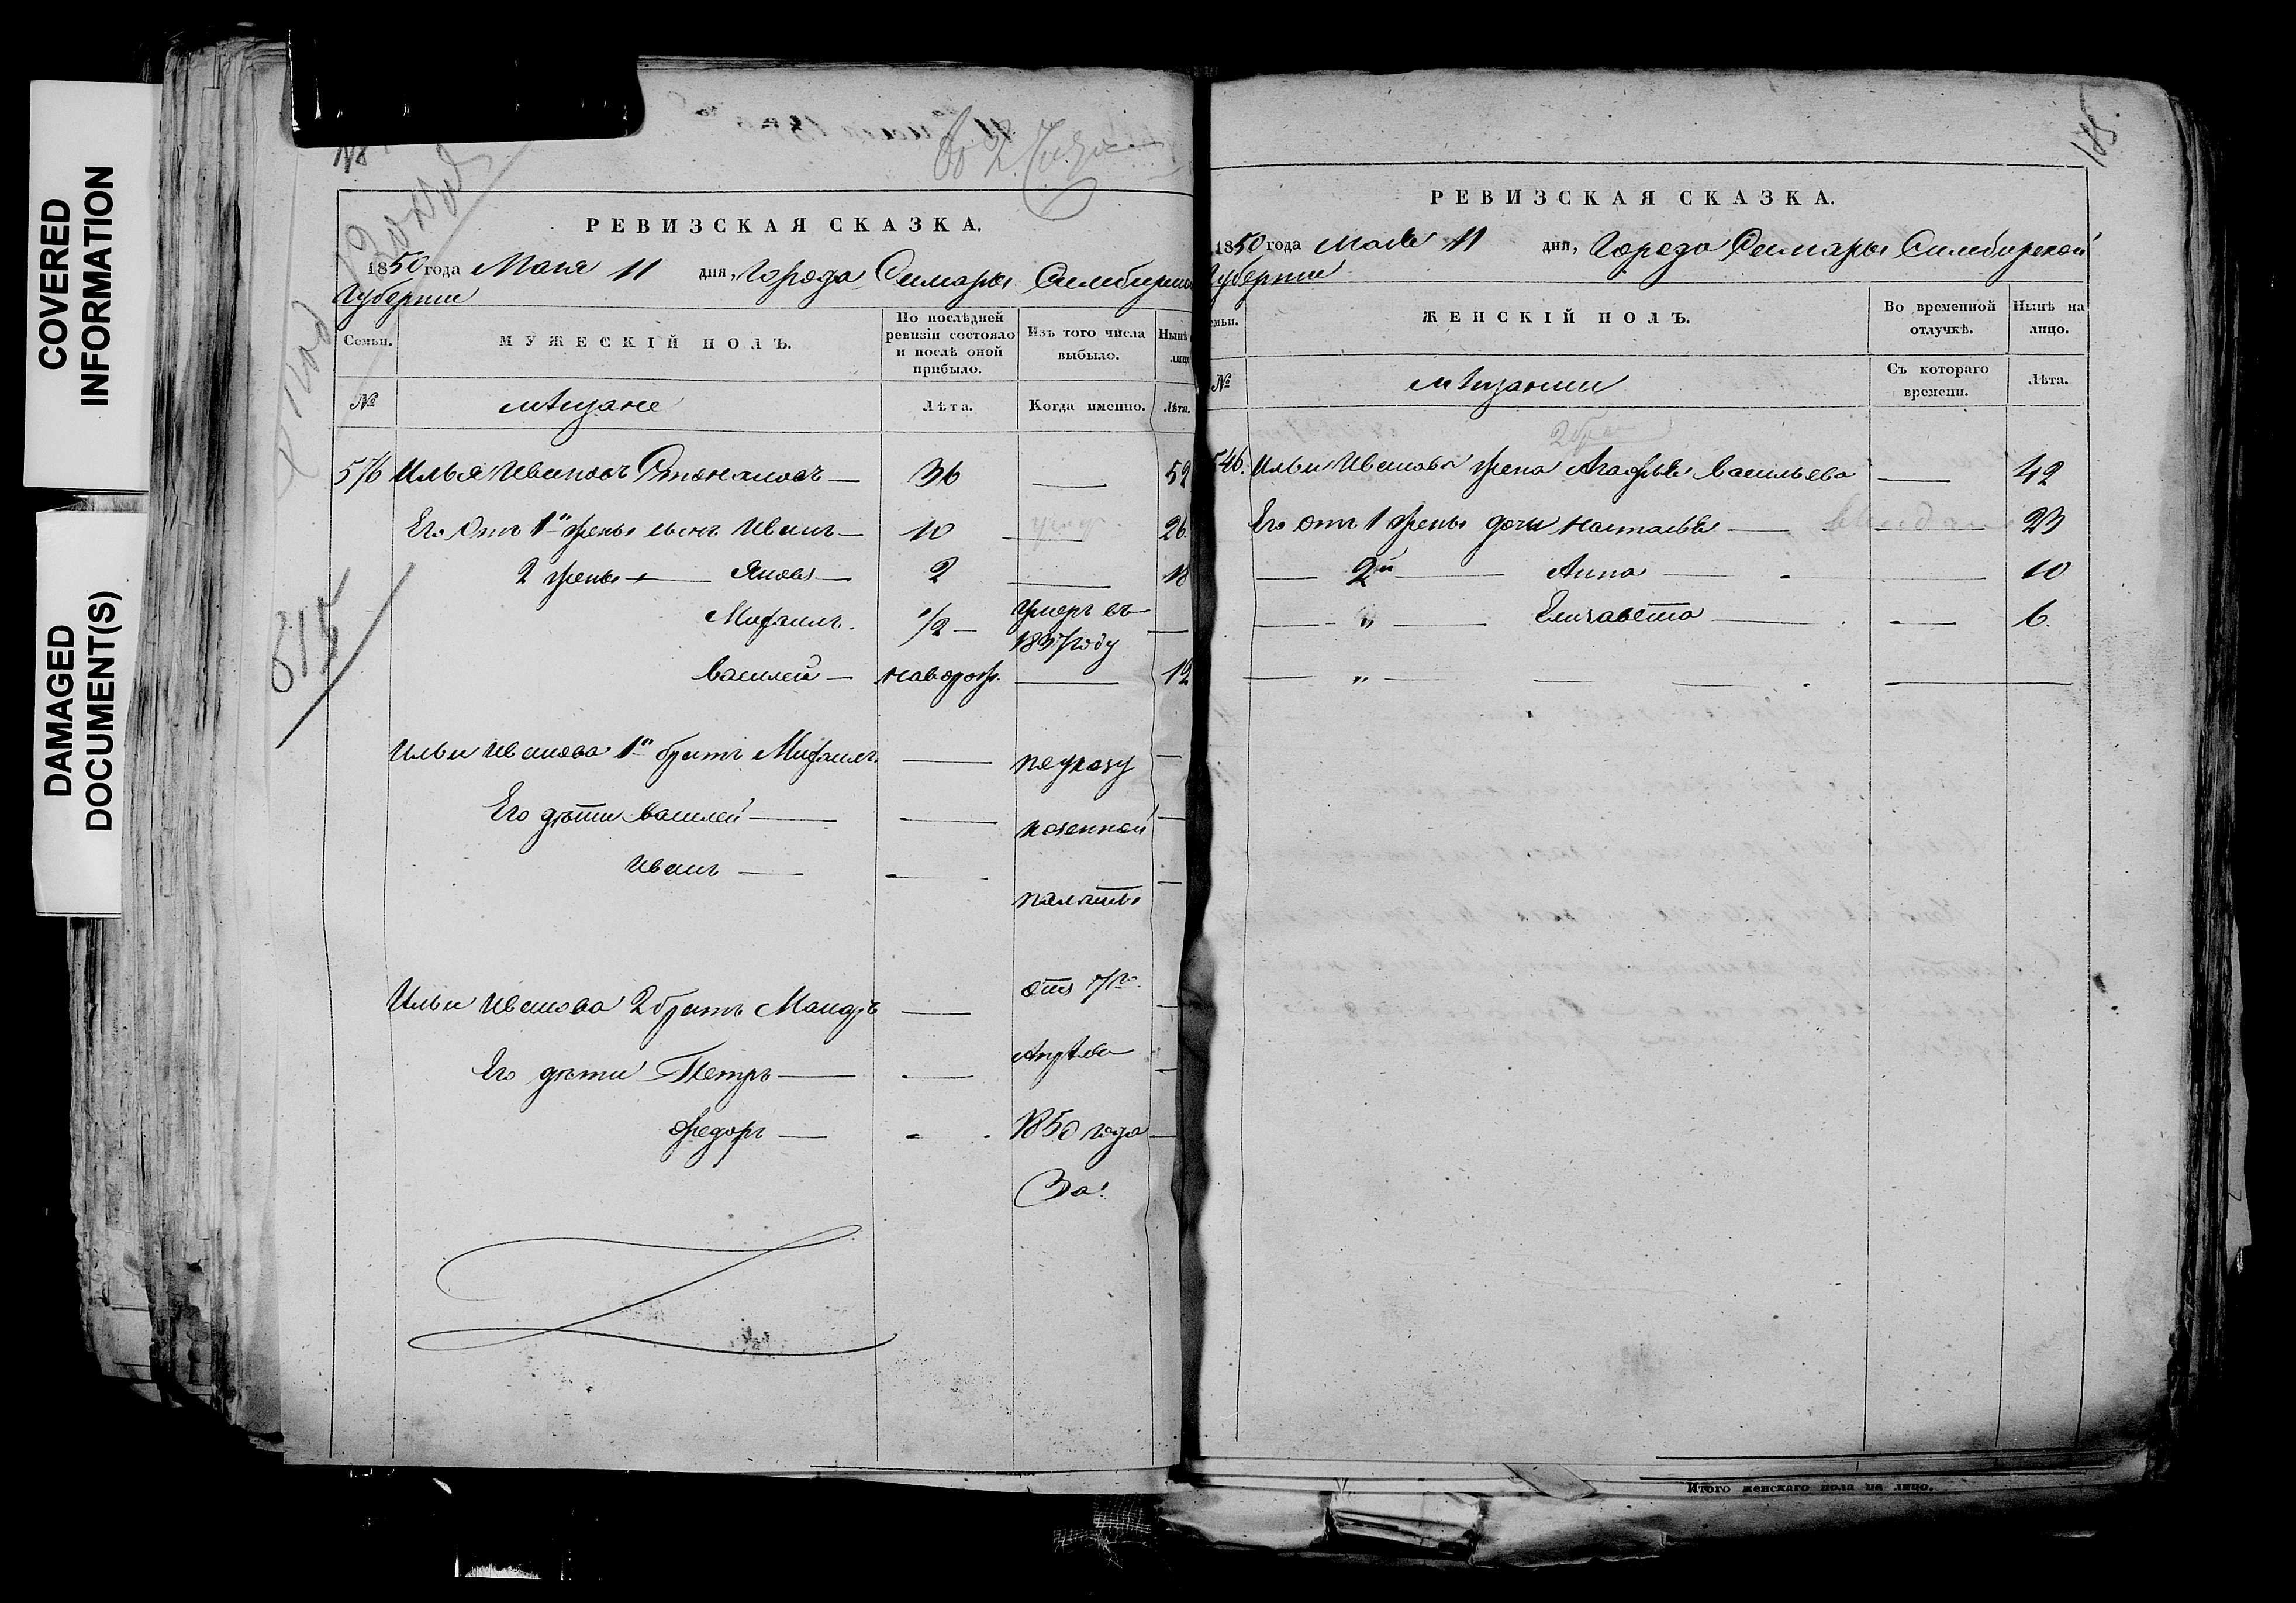 COVERED
INFORMATION
DAMAGED
DOCUMENT(S)
РЕВИЗСКАЯ СКАЗКА.
1850 года Маія 11 дня, Города Самары Симбирской
Губернии
Семьи.
МУЖЕСКІЙ ПОЛЪ.
По послѣдней
ревизіи состояло
и послѣ оной
прибыло.
Изъ того числа
выбыло.
Нынѣ
лицо
№
мѣщане
Лѣта.
Когда именно.
Лѣта.
576 Илья Ивановъ — 36 — 52
Его отъ 1й жены сынъ Иванъ — 10 — 26
2 жены — Яковъ — 2 — 18
Михаилъ. 1/2 — умеръ въ
1837 году —
Василей — новорож. — 12
Ильи Иванова 1й братъ Михаилъ — по указу —
Его дѣти Василей — казенной —
Иванъ — палаты —
Ильи Иванова 2 братъ Макаръ — отъ 17го —
Его дѣти Петръ — Апрѣля —
Федоръ — 1850 года —
За
185
РЕВИЗСКАЯ СКАЗКА.
1850 года Маія 11 дня, Города Самары Симбирской
Губернии
емьи.
ЖЕНСКІЙ ПОЛЪ.
Во временной
отлучкѣ.
Нынѣ на
лицо.
№
мѣщанки
Съ котораго
времени.
Лѣта.
546. Ильи Иванова жена Агафья Васильева — 42
Его отъ 1 жены дочь Настасья — 23
— 2й — Анна — 10
— " — Елизавета — 6.
— " —
Итого женскаго пола на лицо.